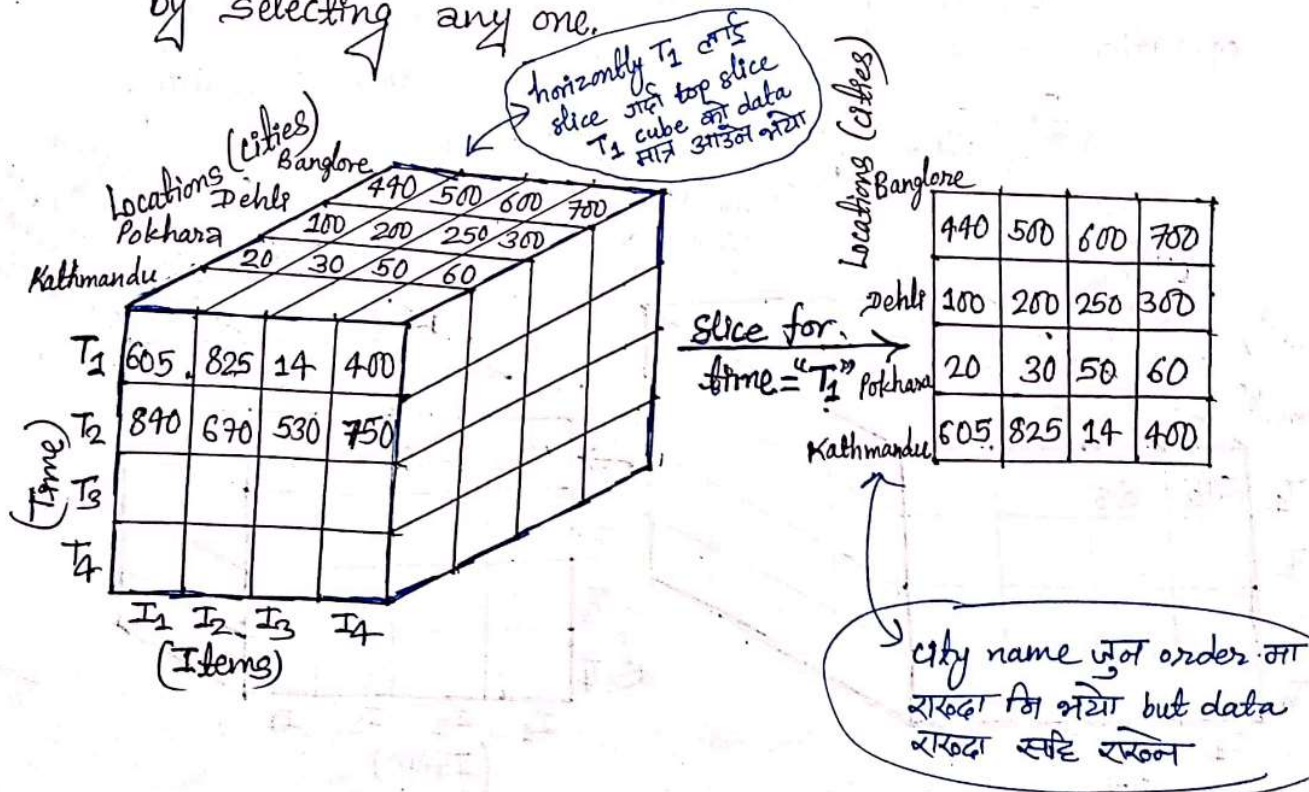 by selecting any one.
horizontly T1 लाई
slice गर्दा top slice
T1 cube को data
मात्र आउने भयो
Locations (cities)
Banglore
Dehli
Pokhara
Kathmandu
440 500 600 700
100 200 250 300
20 30 50 60
T1 605 825 14 400
T2 840 670 530 750
T3
T4
(Time)
I1 I2 I3 I4
(Items)
slice for
time="T1"
Locations (cities)
Banglore 440 500 600 700
Dehli 100 200 250 300
Pokhara 20 30 50 60
Kathmandu 605 825 14 400
city name जुन order मा
राख्दा नि भयो but data
राख्दा सहि राख्ने